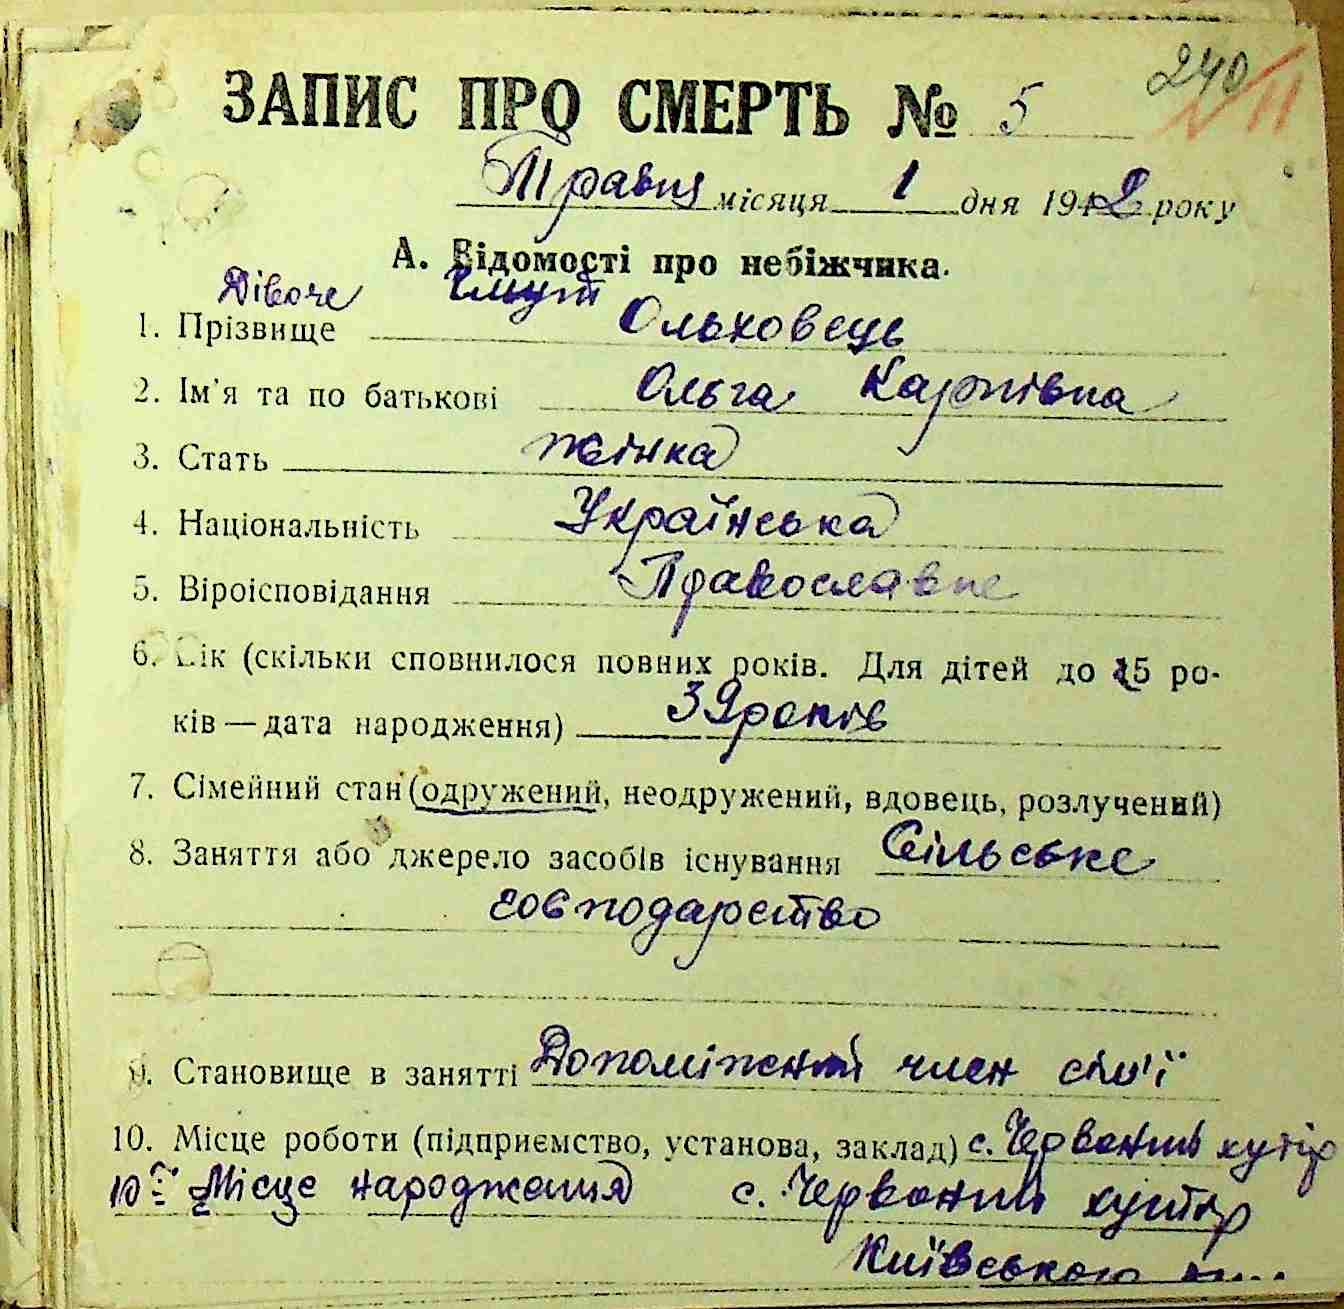 240
11
ЗАПИС ПРО СМЕРТЬ № 5
Травня місяця 1 дня 1942 року
А. Відомості про небіжчика.
Дівоче
1. Прізвище Ольховець
2. Ім'я та по батькові Ольга Карпівна
3. Стать жінка
4. Національність Українська
5. Віроісповідання Православне
6. Вік (скільки сповнилося повних років. Для дітей до 15 ро-
ків — дата народження) 39 років
7. Сімейний стан (одружений, неодружений, вдовець, розлучений)
8. Заняття або джерело засобів існування Сільське
господарство
9. Становище в занятті Допоміжний член сім'ї
10. Місце роботи (підприємство, установа, заклад) с. Червоний хутір
10 Місце народження с. Червоний хутір
Київського